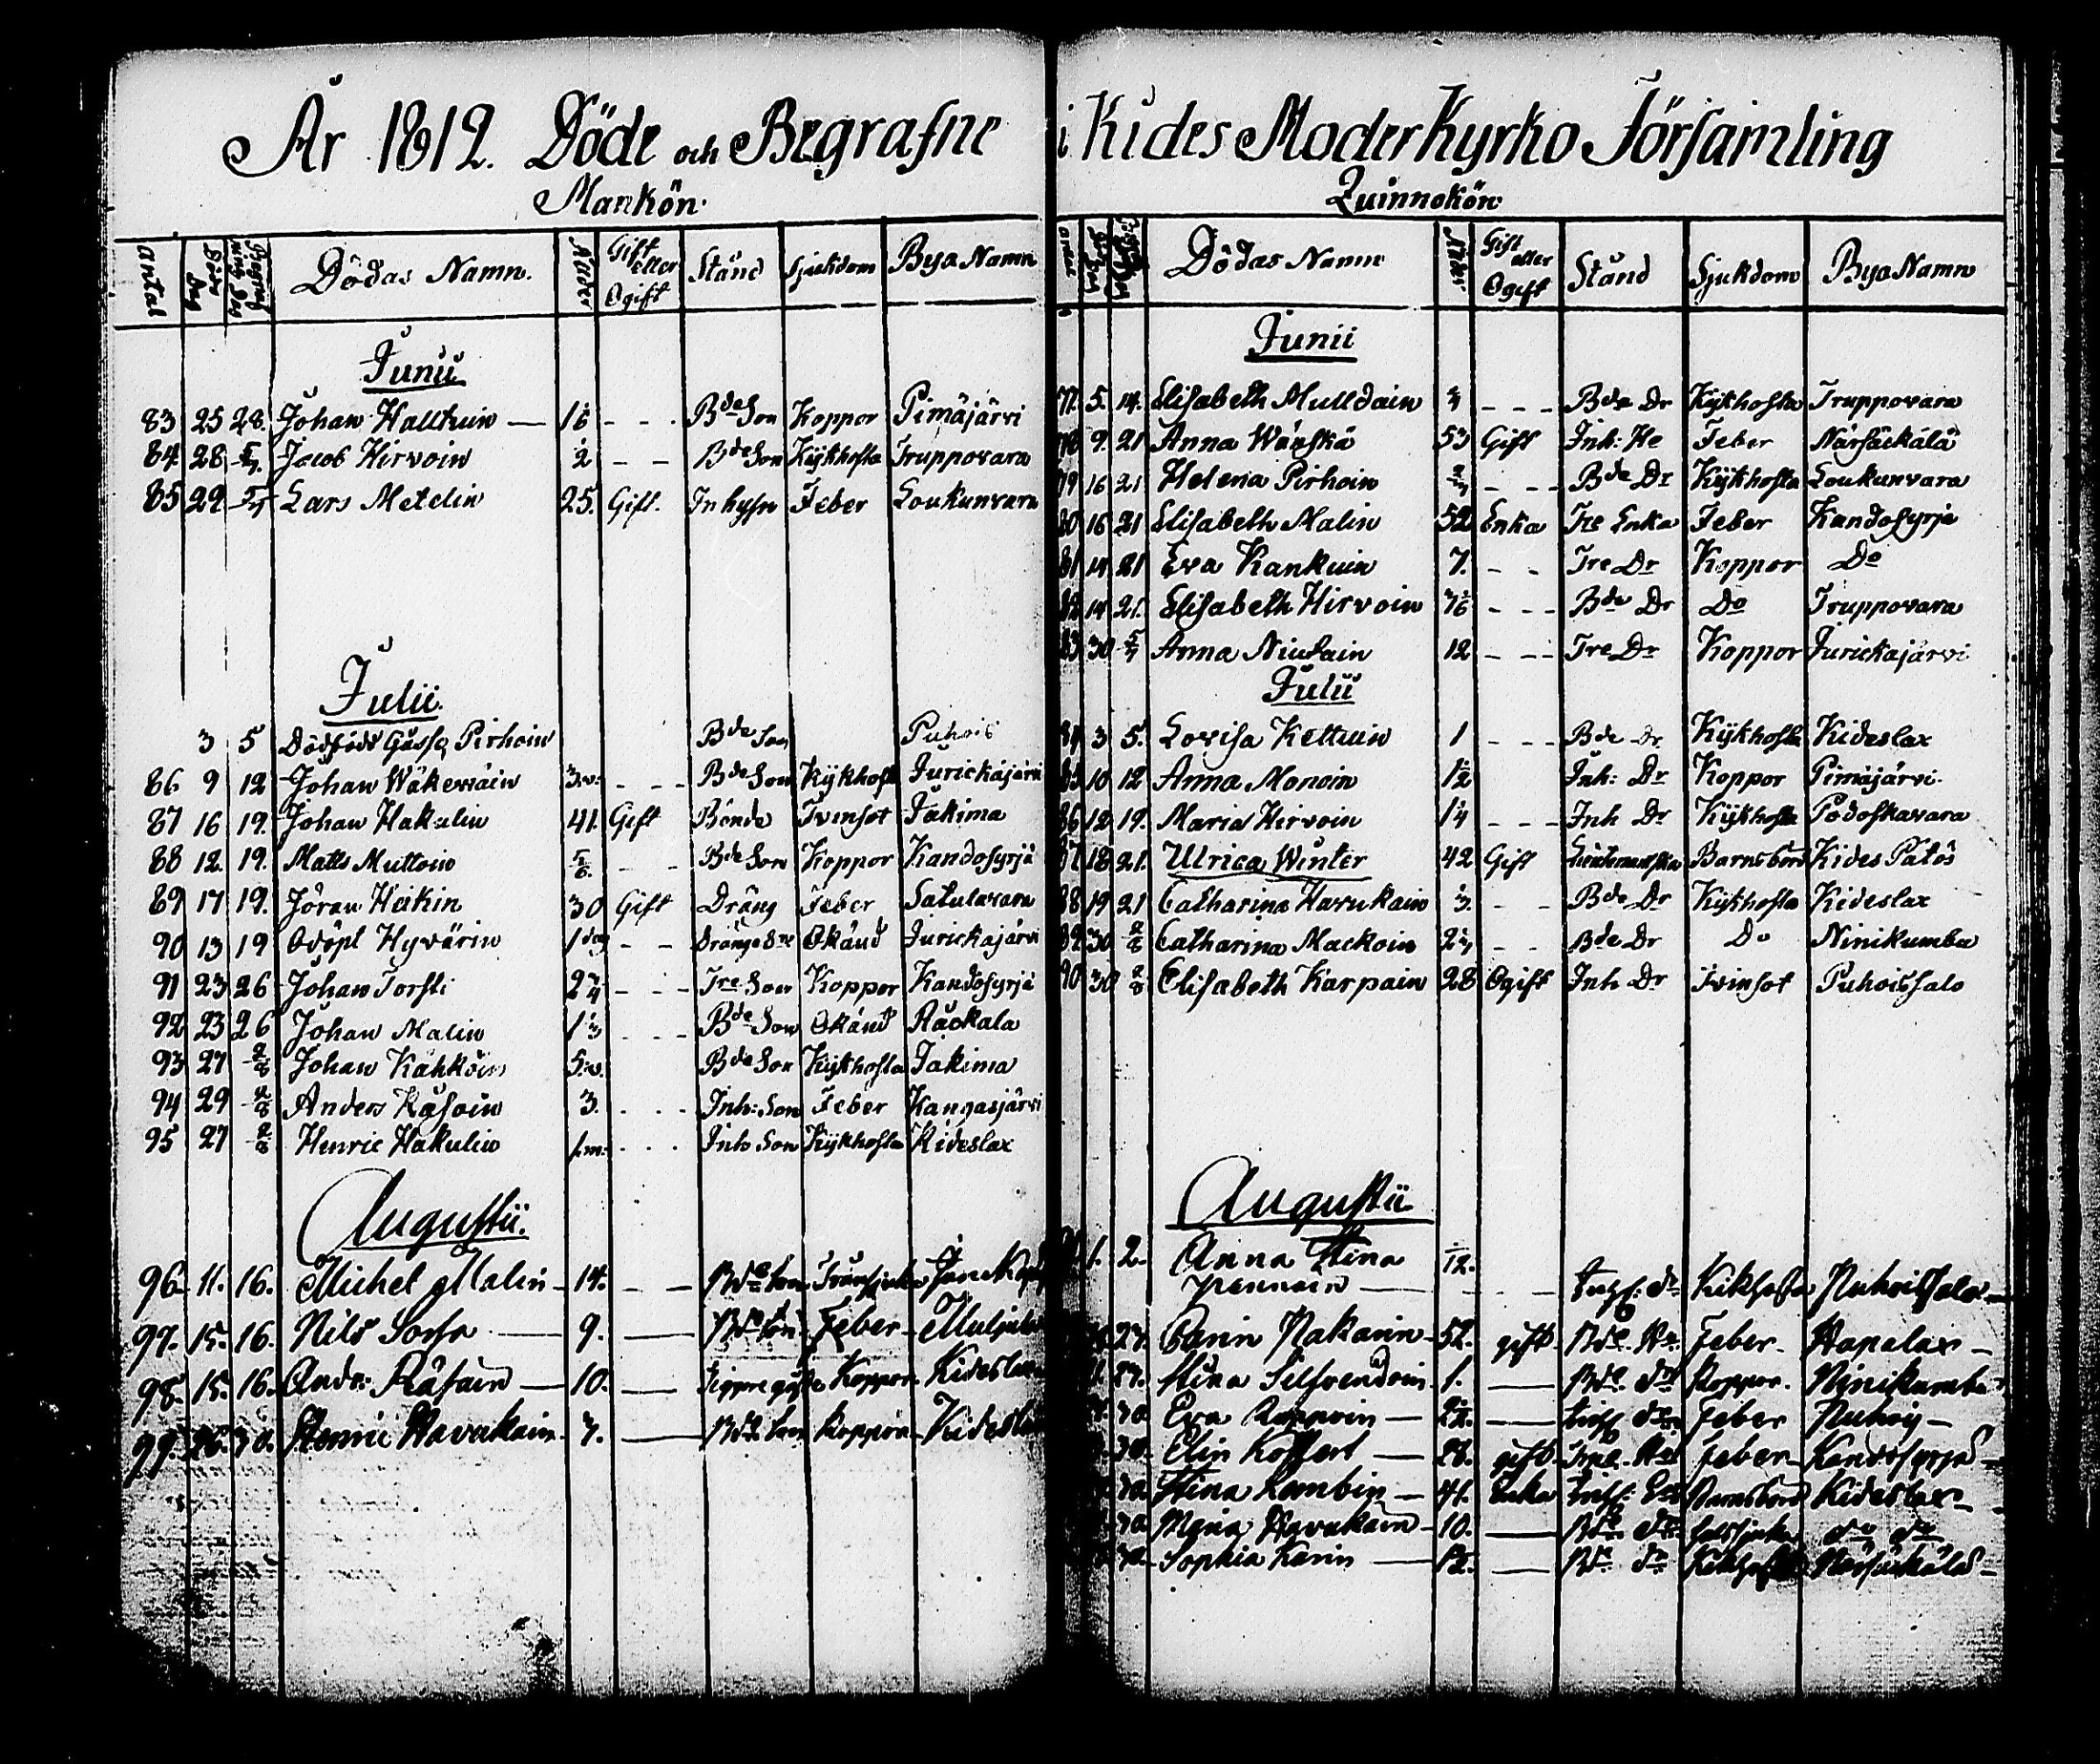 År 1812. Döde och Begrafne i Kides Moderkyrko Församling
Mankön.
Antal Döds Dag Begrafnings Dag Dödas Namn. Ålder Gift eller Ogift Stånd Sjukdom Bya Namn
Junii
83 25 28. Johan Halttuin — 1 - - - Bde Son Koppor Pimäjärvi
84. 28 5/7 Jacob Hirvoin 2 - - Bde Son Kijkhosta Truppovara
85 29 5/7 Lars Metelin 25. Gift. Inhysn Feber Loukunvara
Julii.
3 5 Dödfödt Gosse Pirhoin Bde Son Puhois
86 9 12 Johan Wäkeväin 3.v. - - - Bde Son Kijkhosta Jurickajärvi
87 16 19. Johan Hakulin 41. Gift Bonde Tvinsot Jakima
88 12. 19. Matts Muttoin 5/6. - - Bde Son Koppor Kandosyrjä
89 17 19. Jöran Heikin 30 Gift Dräng Feber Satulavara
90 13 19 Odöpt Hyvärin 1 dag - - Drängs Okänd Jurickajärvi
91 23 26 Johan Torsti 2 3/4 - - - Tre Son Koppor Kandosyrjä
92 23 26 Johan Malin 1 1/3 - - - Bde Son Okänd Räckälä
93 27 2/8 Johan Kähköin 5.v. Bde Son Kijkhosta Jakima
94 29 2/8 Anders Räsoin 3. - - - Inh: Son Feber Kangasjärvi
95 27 2/8 Henric Hakulin 1.m. - - - Inh Son Kijkhosta Kideslax
Augustii.
96. 11. 16. Michel Malin - 14. - - Bde Son
97. 15. 16. Nils Sorsa — 9. — Bde Son Feber -
98. 15. 16. Andr: Räsain — 10. — Koppor Kideslax
99. 26. 30. Henric Havukain. 7. — Bde Son Koppor - Kideslax
Quinnokön
Antal Dödas Namn Ålder Gift eller Ogift Stånd Sjukdom Bya Namn
Junii
77. 5. 14. Elisabeth Mulldain - - - Bde Dr Kijkhosta Truppovara
78 9. 21 Anna Wänskä 53 Gift Inh: He Feber Närsäckälä
79 16 21 Helena Pirhoin - - - Bde Dr Kijkhosta Loukunvara
80 16 21 Elisabeth Malin 52 Enka Tre Enka Feber Kandosyrja
81 14 21 Eva Kankuin 7. - - Tre Dr Koppor Do
82 14 21. Elisabeth Hirvoin - - - Bde Dr Do Truppovara
83 30 5/7 Anna Niutain 12 - - - Tre Dr Koppor Jurickajärvi
Julii
84 3 5. Lovisa Kettuin 1 - - - Bde Dr Kijkhosta Kideslax
85 10 12 Anna Monoin 1/2 Inh: Dr Koppor Pimäjärvi.
86 12 19. Maria Hirvoin 1/4 - - - Inh Dr Kijkhosta Podoskavara
87 18 21. Ulrica Winter 42 Gift Barnsbörd Kides Potos
88 19 21 Catharina Havukain 3. - - Bde Dr Kijkhosta Kideslax
89. 30 2/8 Catharina Mackoin - - Bde Dr Do Ninikumba
90 30 2/8 Elisabeth Karpain 28 Ogift Inh Dr Tvinsot Puhoissalo
Augustii.
1. 2. Anna Stina 1/12.
— - - Inhs: Dr Kikhosta Puhoissalo —
23. Carin Pakarin - 52. gift. Bde Hu: Feber - Hapalax —
23. Stina Silfvendoin 1. — Bde Dr Koppor. Ninikumba
30. Eva — — Dr Feber Puhois —
30. Elin Koffert — 28. gift. Feber - Kandosyrjä -
30. Stina Rombin — 41. Enka Barnsbörd Kideslax -
30. Maria Havukain - 10. — Bde Dr do do
30. Sophia Karin — — Bde Dr Kikhosta Närsäkälä -